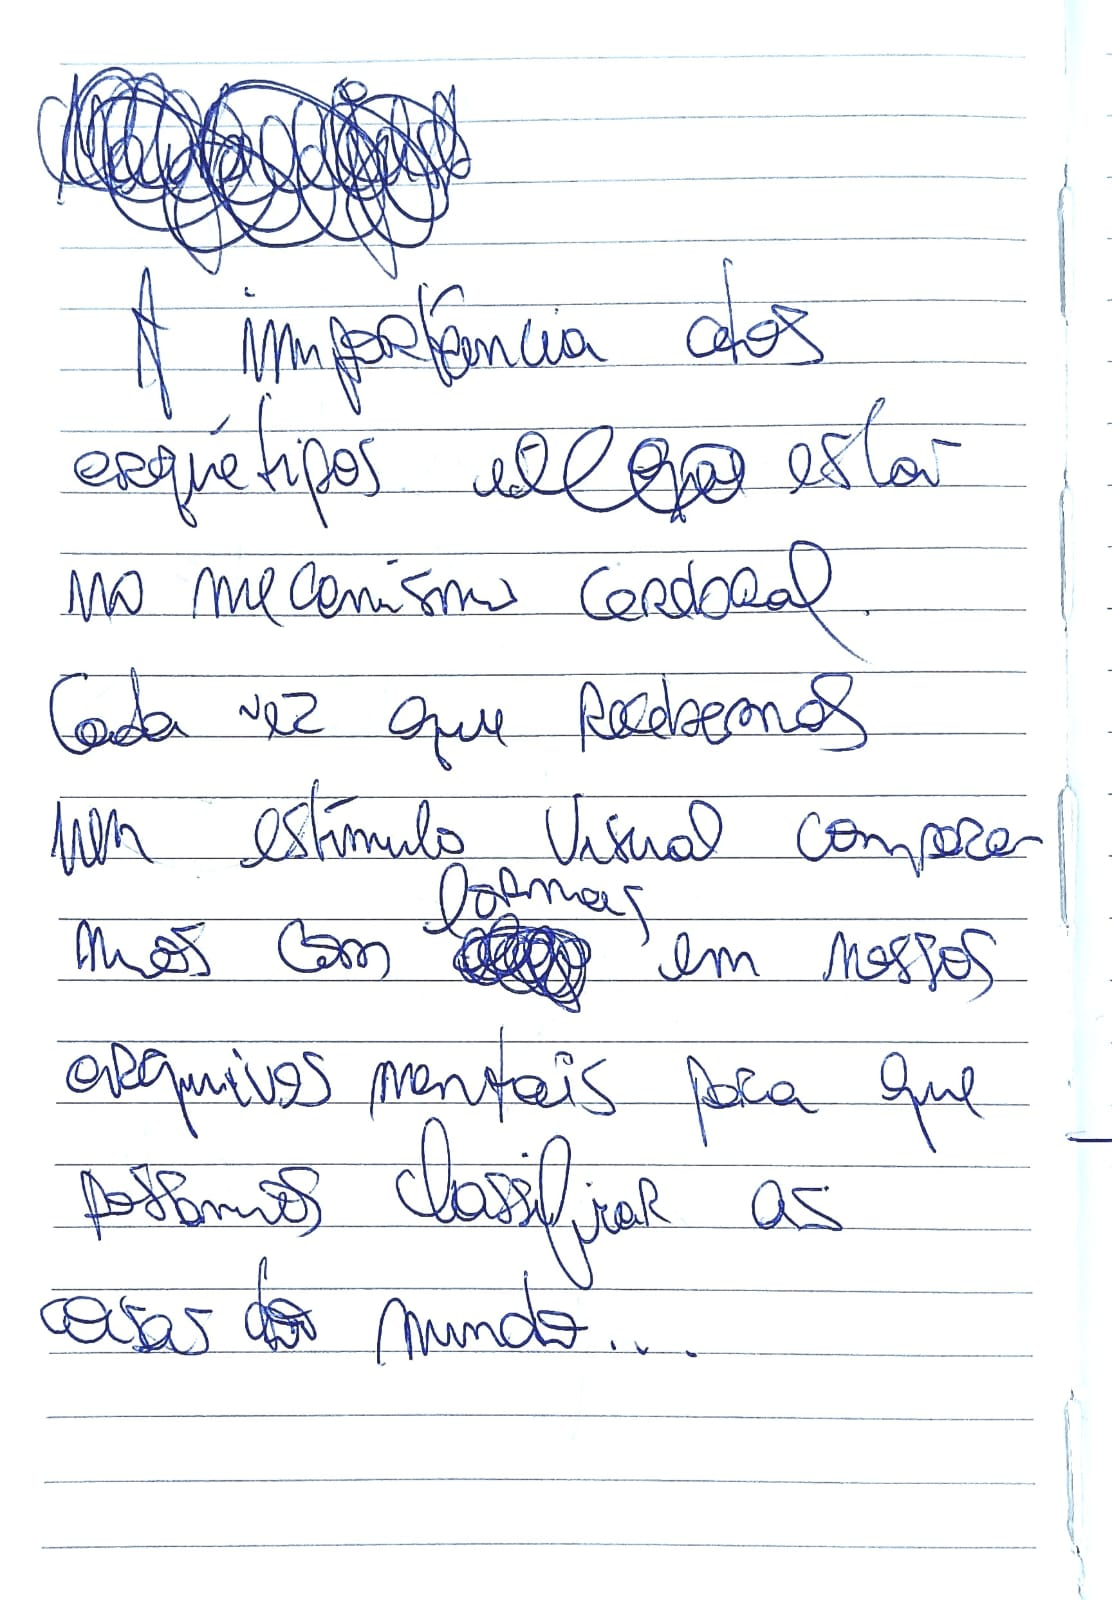 A importância dos
arquétipos está
no mecanismo cerebral.
Cada vez que recebemos
um estímulo visual compara-
mos com formas em nossos
arquivos mentais para que
possamos classificar as
coisas do mundo...